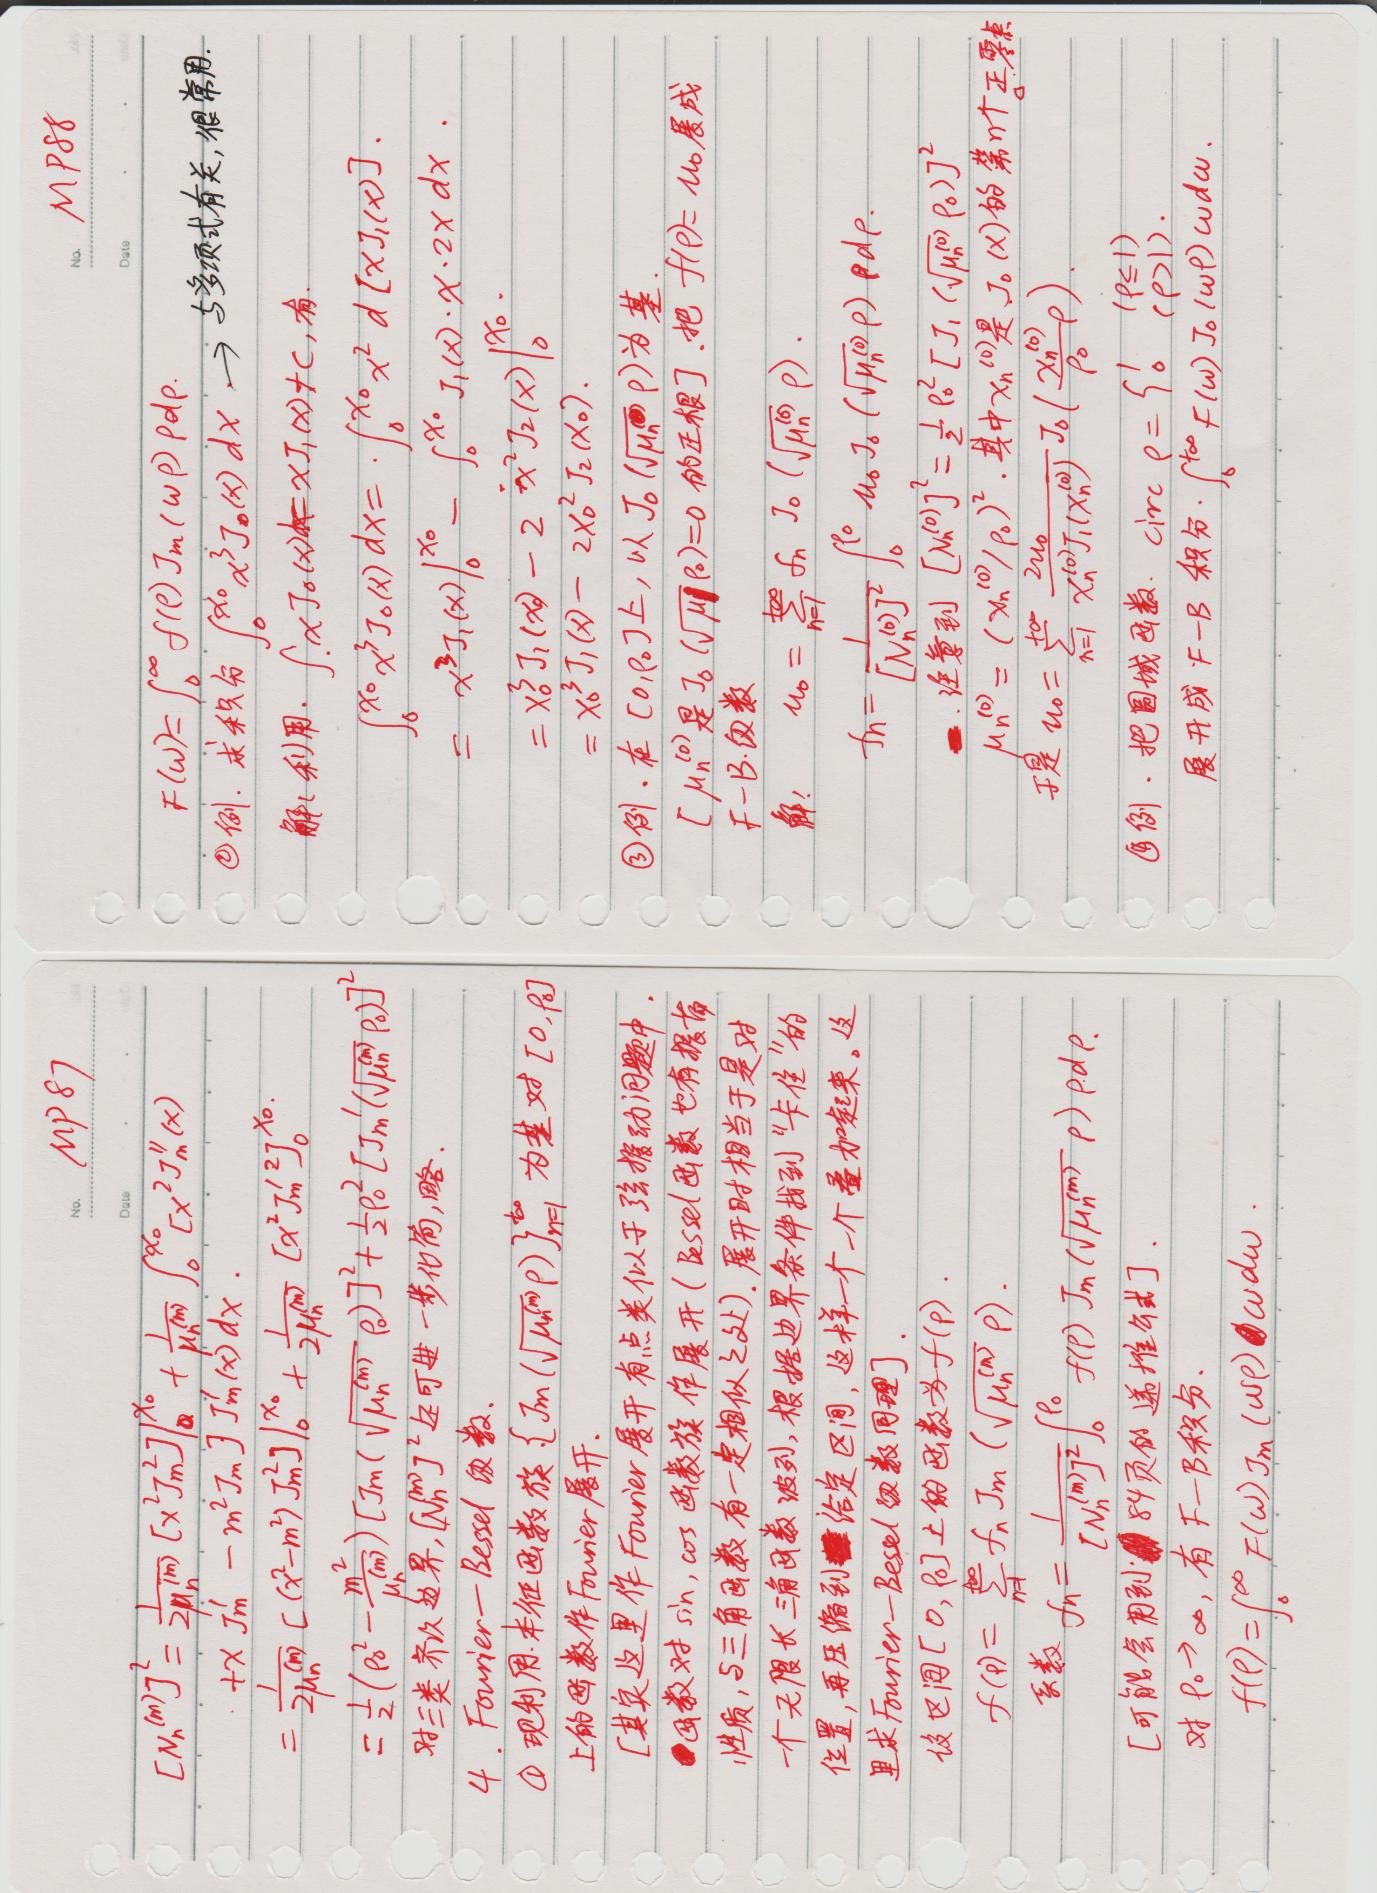 No. MP87
Date
[Nₙ⁽ᵐ⁾]² = 1/(2μₙ⁽ᵐ⁾) [x²Jm²]|₀^x₀ + 1/μₙ⁽ᵐ⁾ ∫₀^x₀ [x²J″m(x)
+x J′m − m²Jm] J′m(x) dx.
= 1/(2μₙ⁽ᵐ⁾) [(x²−m²) Jm²]|₀^x₀ + 1/(2μₙ⁽ᵐ⁾) [x²J′m²]₀^x₀.
= ½ (ρ₀² − m²/μₙ⁽ᵐ⁾) [Jm(√μₙ⁽ᵐ⁾ ρ₀)]² + ½ρ₀² [Jm′(√μₙ⁽ᵐ⁾ ρ₀)]²
对三类齐次边界, [Nₙ⁽ᵐ⁾]² 还可进一步化简,略.
4. Fourier—Bessel 级数.
① 现利用本征函数族 {Jm(√μₙ⁽ᵐ⁾ρ)}ₙ₌₁^+∞ 为基对 [0,ρ₀]
上的函数作Fourier展开.
[其实这里作Fourier展开有点类似于弦振动问题中.
函数对sin, cos函数族作展开(Bessel函数也有振荡
性质,与三角函数有一定相似之处). 展开时相当于是对
一个无限长三角函数波列,根据边界条件找到“卡住”的
位置,再压缩到给定区间,这样一个一个叠加起来。这
里求Fourier—Bessel级数同理].
设区间[0,ρ₀]上的函数为f(ρ).
f(ρ) = Σₙ₌₁^+∞ fₙ Jm (√μₙ⁽ᵐ⁾ ρ).
系数 fₙ = 1/[Nₙ⁽ᵐ⁾]² ∫₀^ρ₀ f(ρ) Jm(√μₙ⁽ᵐ⁾ ρ) ρdρ.
[可能会用到84页的递推公式].
对 ρ₀→∞, 有F—B积分.
f(ρ) = ∫₀^∞ F(ω) Jm (ωρ) ωdω.
No. MP88
Date
F(ω) = ∫₀^∞ f(ρ) Jm(ωρ) ρdρ.
② 例. 求积分 ∫₀^x₀ x³J₀(x) dx → 与多项式有关,很常用.
解: 利用. ∫ x J₀(x)dx = xJ₁(x)+C, 有.
∫₀^x₀ x³J₀(x) dx = ∫₀^x₀ x² d [xJ₁(x)].
= x³J₁(x)|₀^x₀ − ∫₀^x₀ J₁(x)·x·2x dx.
= x₀³ J₁(x₀) − 2 x²J₂(x)|₀^x₀.
= x₀³ J₁(x) − 2x₀² J₂(x₀).
③ 例. 在 [0,ρ₀]上, 以 J₀(√μₙ⁽⁰⁾ ρ) 为基.
[μₙ⁽⁰⁾是J₀(√μ ρ₀)=0 的正根]. 把 f(ρ)=u₀展成
F—B.级数
解: u₀ = Σₙ₌₁^+∞ fₙ J₀ (√μₙ⁽⁰⁾ ρ).
fₙ = 1/[Nₙ⁽⁰⁾]² ∫₀^ρ₀ u₀ J₀ (√μₙ⁽⁰⁾ ρ) ρdρ.
注意到 [Nₙ⁽⁰⁾]² = ½ ρ₀² [J₁(√μₙ⁽⁰⁾ ρ₀)]²
μₙ⁽⁰⁾ = (xₙ⁽⁰⁾/ρ₀)². 其中xₙ⁽⁰⁾是J₀(x)的第n个正零点
于是 u₀ = Σₙ₌₁^+∞ 2u₀/(xₙ⁽⁰⁾J₁(xₙ⁽⁰⁾)) J₀ (xₙ⁽⁰⁾/ρ₀ ρ).
④例. 把圆域函数. circ ρ = { 1 (ρ≤1) 0 (ρ>1).
展开成F—B积分. ∫₀^+∞ F(ω) J₀(ωρ) ωdω.